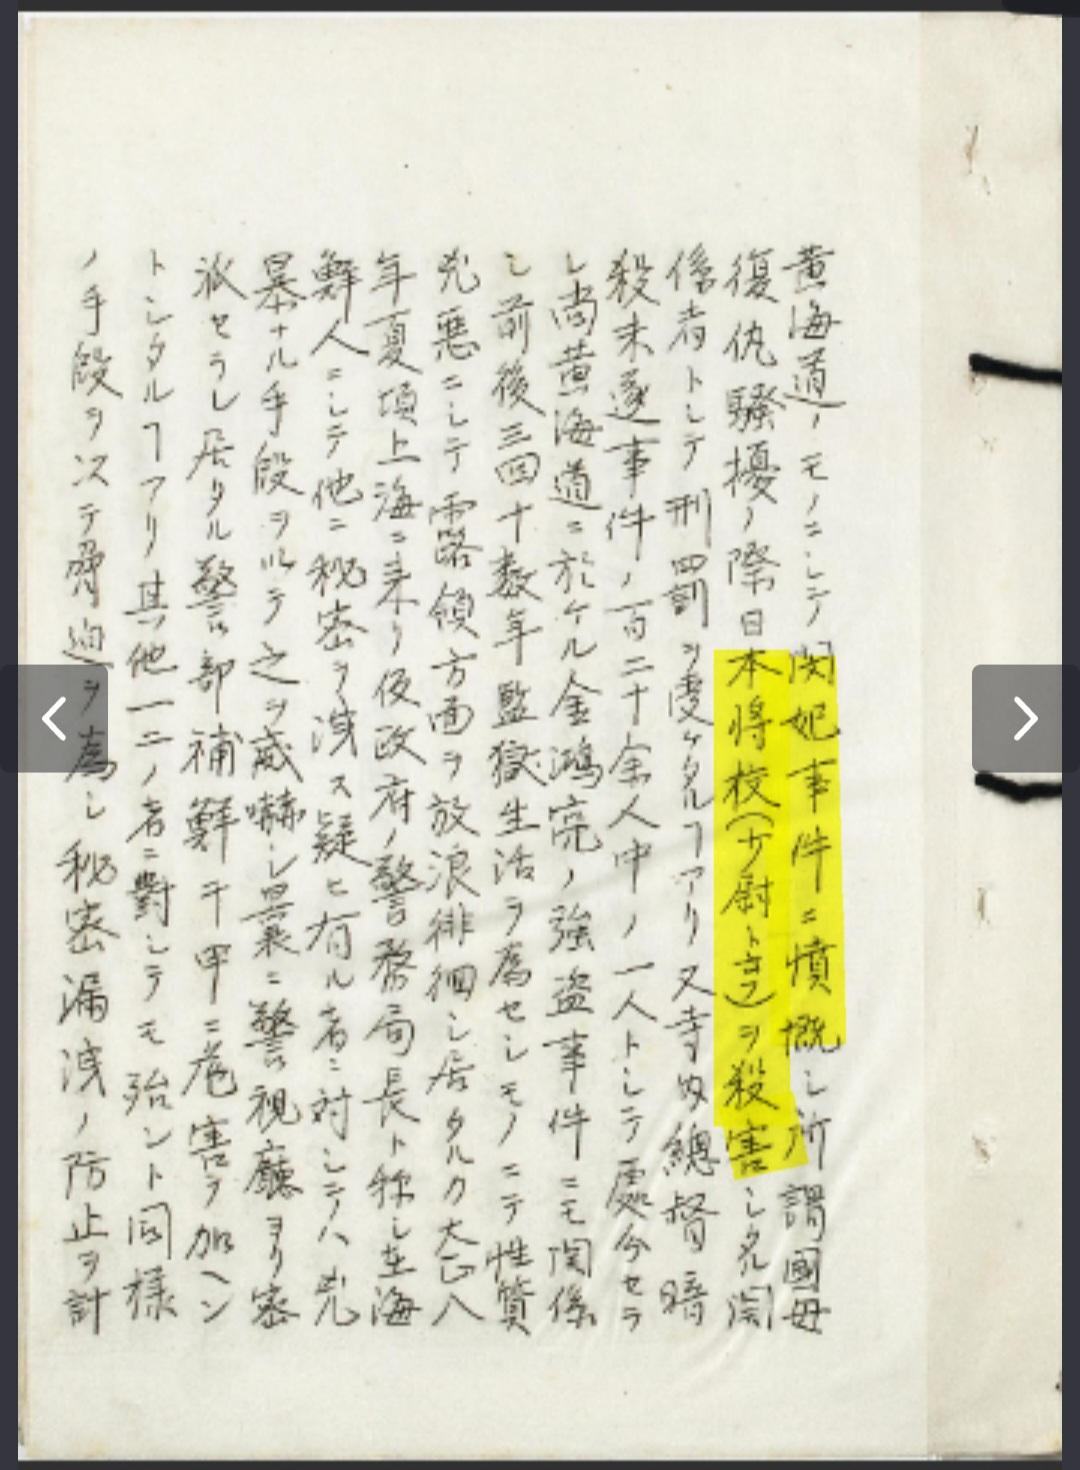 黄海道ノモノニシテ閔妃事件ニ憤慨シ所謂國母
復仇騒擾ノ際日本将校(少尉ト云フ)ヲ殺害シタル関
係者トシテ刑罰ヲ受ケタルヿアリ又寺内總督暗
殺未遂事件ノ百二十余人中ノ一人トシテ處分セラ
レ尚黄海道ニ於ケル金鴻亮ノ強盗事件ニモ関係
シ前後三回十数年監獄生活ヲ為セシモノニテ性質
兇悪ニシテ露領方面ヲ放浪徘徊シ居タルカ大正八
年夏頃上海ニ来リ仮政府ノ警務局長ト称シ在海
鮮人ニシテ他ニ秘密ヲ洩ス疑ヒ有ル者ニ対シテハ兇
暴ナル手段ヲ以テ之ヲ威嚇シ曩ニ警視廳ヨリ密
派セラレ居タル警部補鮮于甲ニ危害ヲ加ヘン
トシタルヿアリ其他一二ノ者ニ對シテモ殆ント同様
ノ手段ヲ以テ脅迫ヲ為シ秘密漏洩ノ防止ヲ計